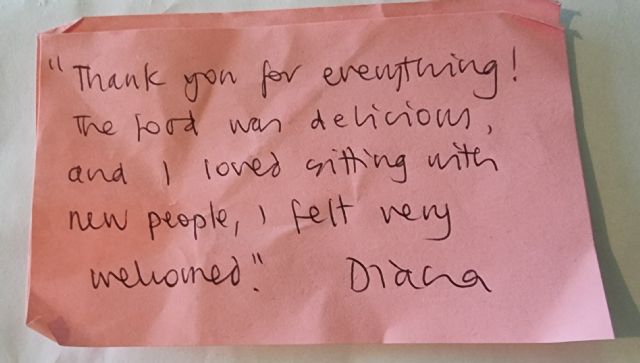 "Thank you for everything!
The food was delicious,
and I loved sitting with
new people, I felt very
welcomed". Diana